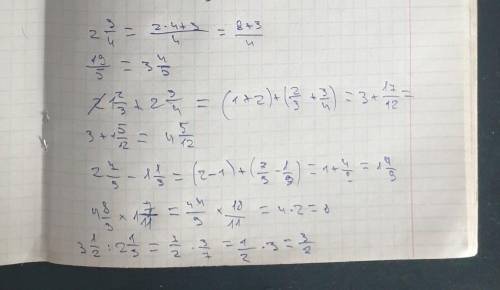 2 3/4 = (2·4+3)/4 = (8+3)/4
19/5 = 3 4/5
1 2/3 + 2 3/4 = (1+2)+(2/3+3/4) = 3+17/12 =
3+1 5/12 = 4 5/12
2 7/9 - 1 1/3 = (2-1)+(7/9-1/3) = 1+4/9 = 1 4/9
4 8/9 × 1 7/11 = 44/9 × 18/11 = 4·2 = 8
3 1/2 : 2 1/3 = 7/2 · 3/7 = 1/2 · 3 = 3/2